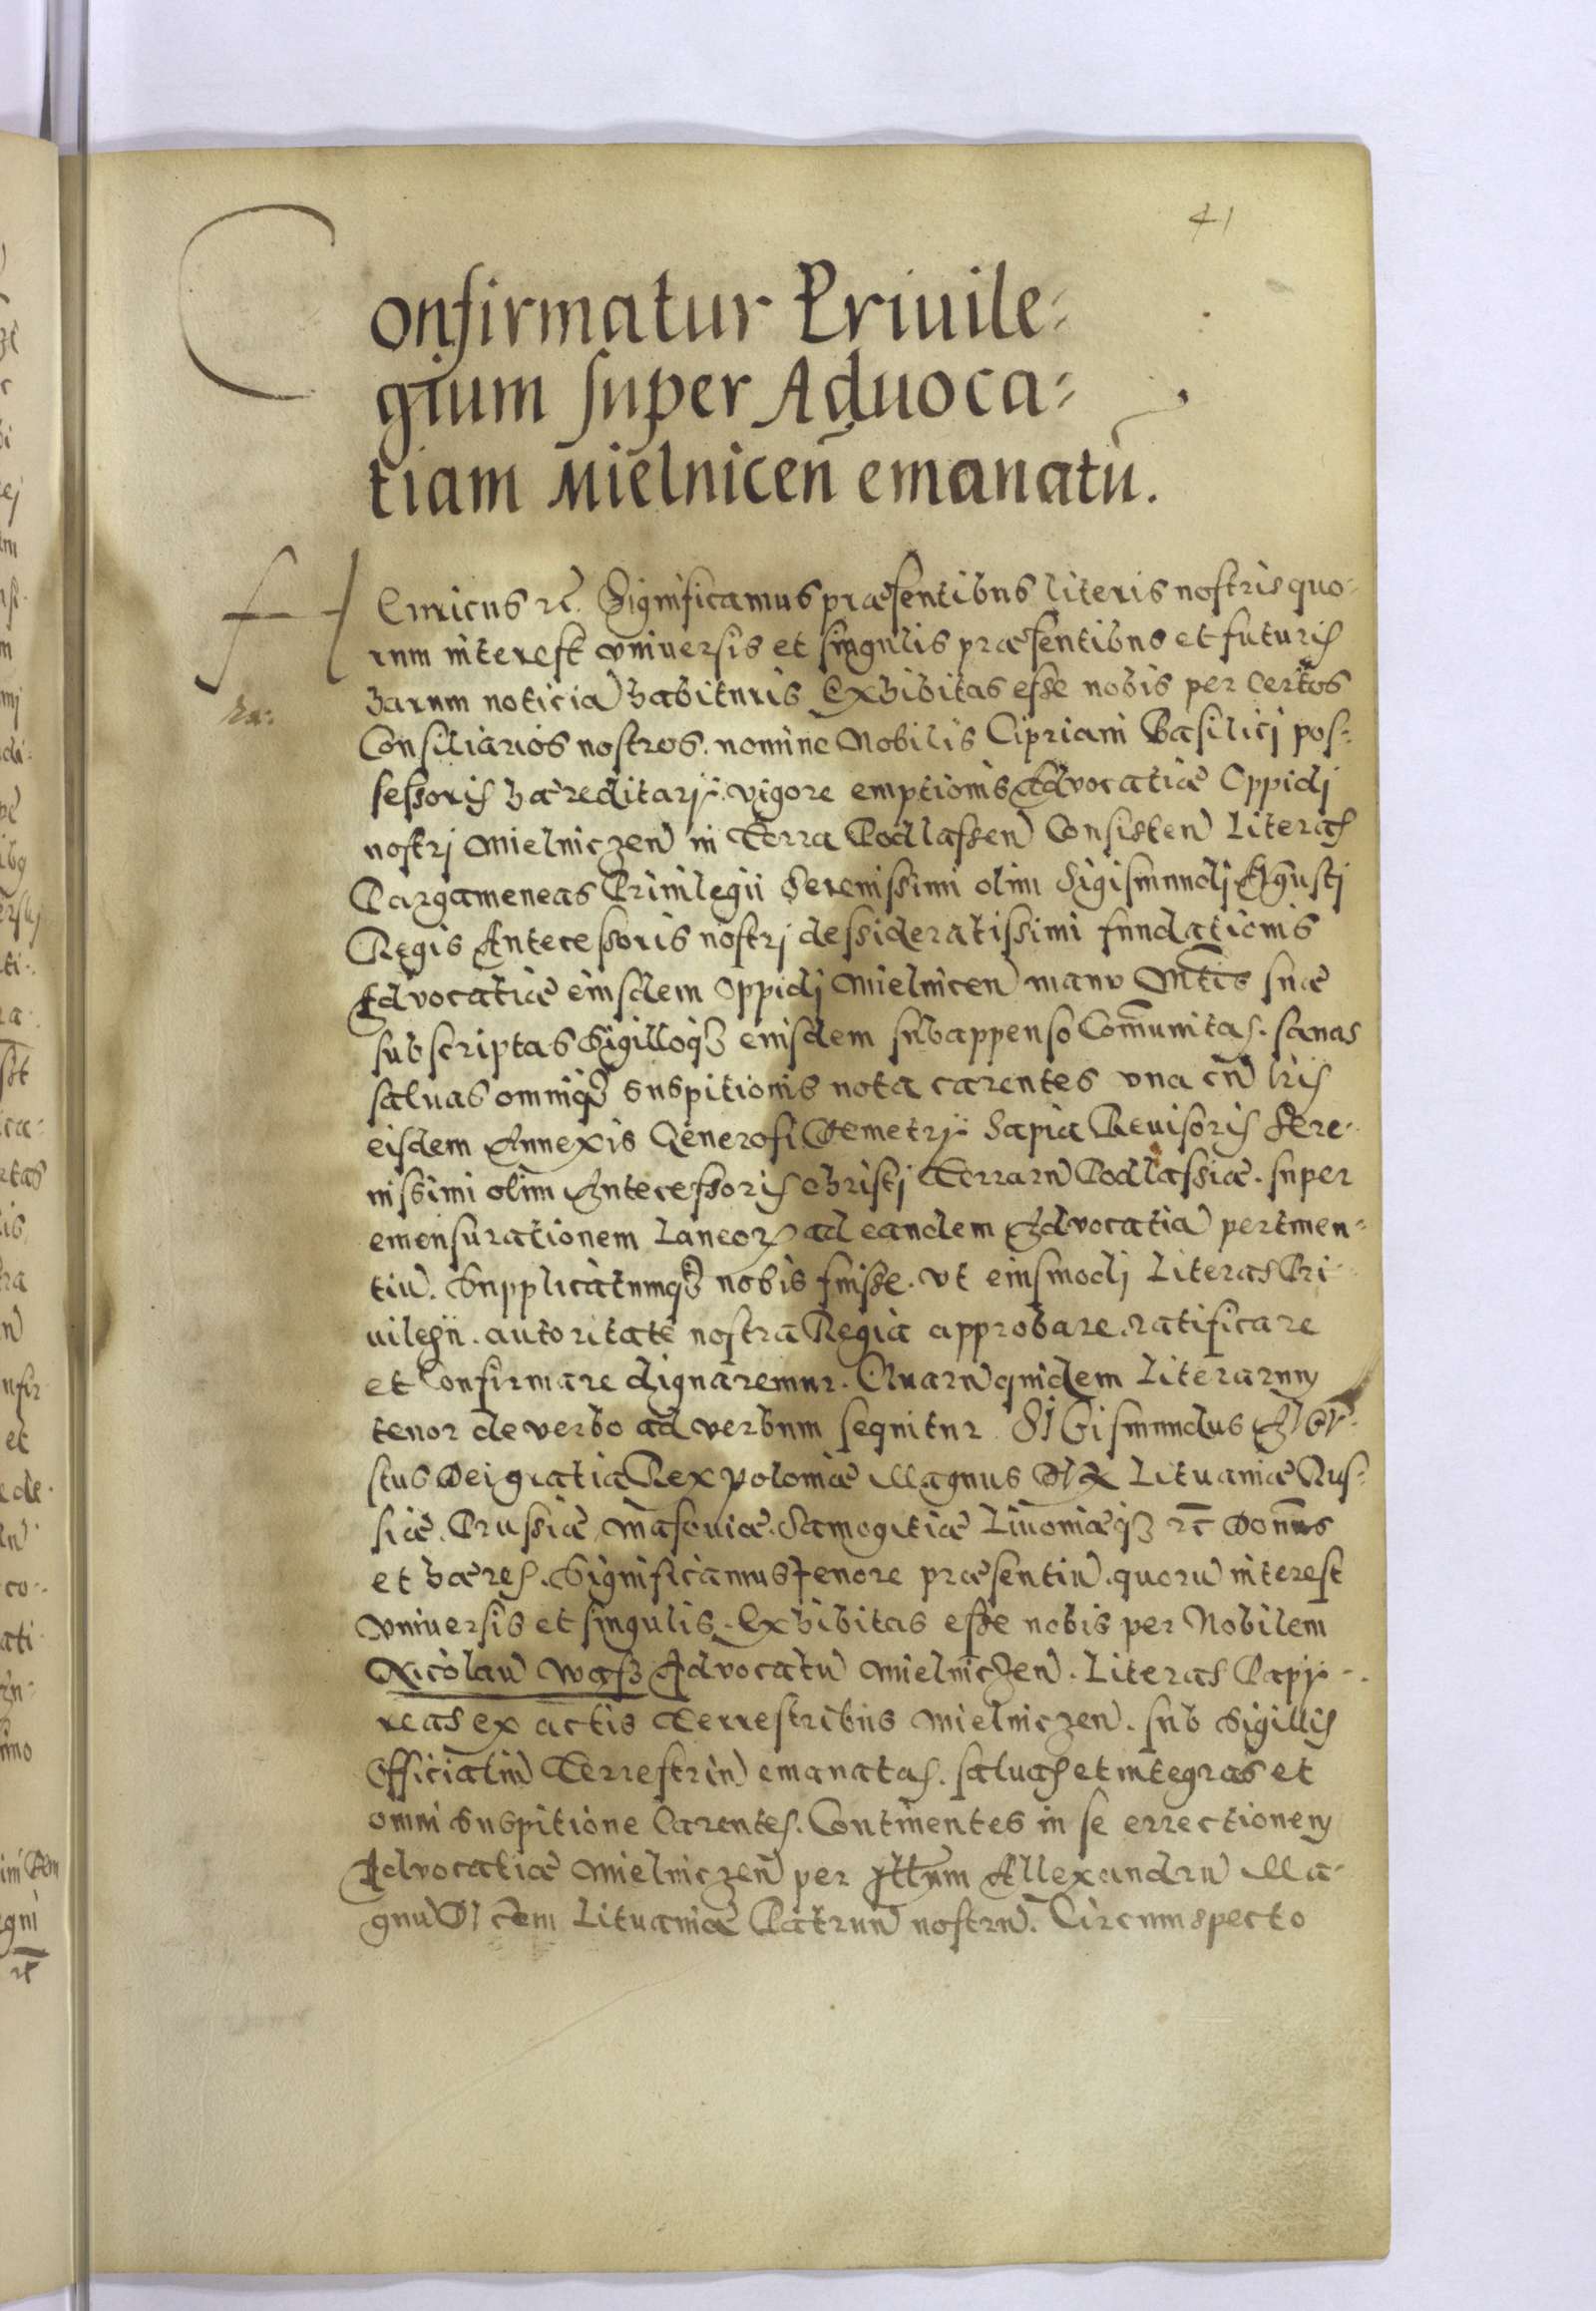 41
Confirmatur Priuile-
gium super Aduoca-
tiam Mielnicen̄ emanatū.
Henricus etc. Significamus præsentibus literis nostris quo-
rum interest vniuersis et singulis præsentibus et futuris
harum noticiā habituris Exhibitas esse nobis per certos
Consiliarios nostros. nomine Nobilis Cipriani Basilici pos-
sessoris hæreditarÿ. vigore emptionis Advocatiæ Oppidj
nostrj Mielniczen̄ in Terra Podlassen̄ Consisten̄ Literas
Pargameneas Priuilegii Serenissimi olim Sigismundj Agustj
Regis Antecessoris nostrj dessideratissimi fundationis
Advocatiæ eiusdem Oppidj Mielnicen̄ manu Mtis suæ
subscriptas Sigilloqȝ eiusdem subappenso Com̄unitas. sanas
saluas omniqȝ suspitionis nota carentes vna cū lris
eisdem Annexis Generosi Demetrÿ Sapia Reuisoris Sere-
nissimi olim Antecessoris Christj Terrarū Podlassiæ. super
emensurationem Laneoꝝ ad eandem Advocatiā pertinen-
tiū. Supplicatumqȝ nobis fuisse. vt eiusmodj Literas Pri-
uilegii. autoritate nostra Regia approbare. ratificare
et Confirmare dignaremur. Quarū quidem Literarum
tenor de verbo ad verbum sequitur. SIGismundus AVGV-
stus Dei gratia Rex Poloniæ Magnus DVX Lituaniæ Rus-
siæ. Prussiæ Masouiæ. Samogitiæ Liuoniæqȝ etc Domn̄us
et hæres. Significamus Tenore præsentiū. quorū interest
Vniuersis et singulis. Exhibitas esse nobis per Nobilem
Nicolaū Wasȝ Advocatū Mielniczen̄. Literas Papÿ-
reas ex actis Terrestribus Mielniczen̄. sub Sigillis
Officialiū Terrestriū emanatas. saluas et integras et
omni suspitione Carentes. Continentes in se errectionem
Advocatiæ Mielniczen̄ per Illum Allexandrū Ma-
gnū DVcem Lituaniæ Patruū nostrū. Circumspecto